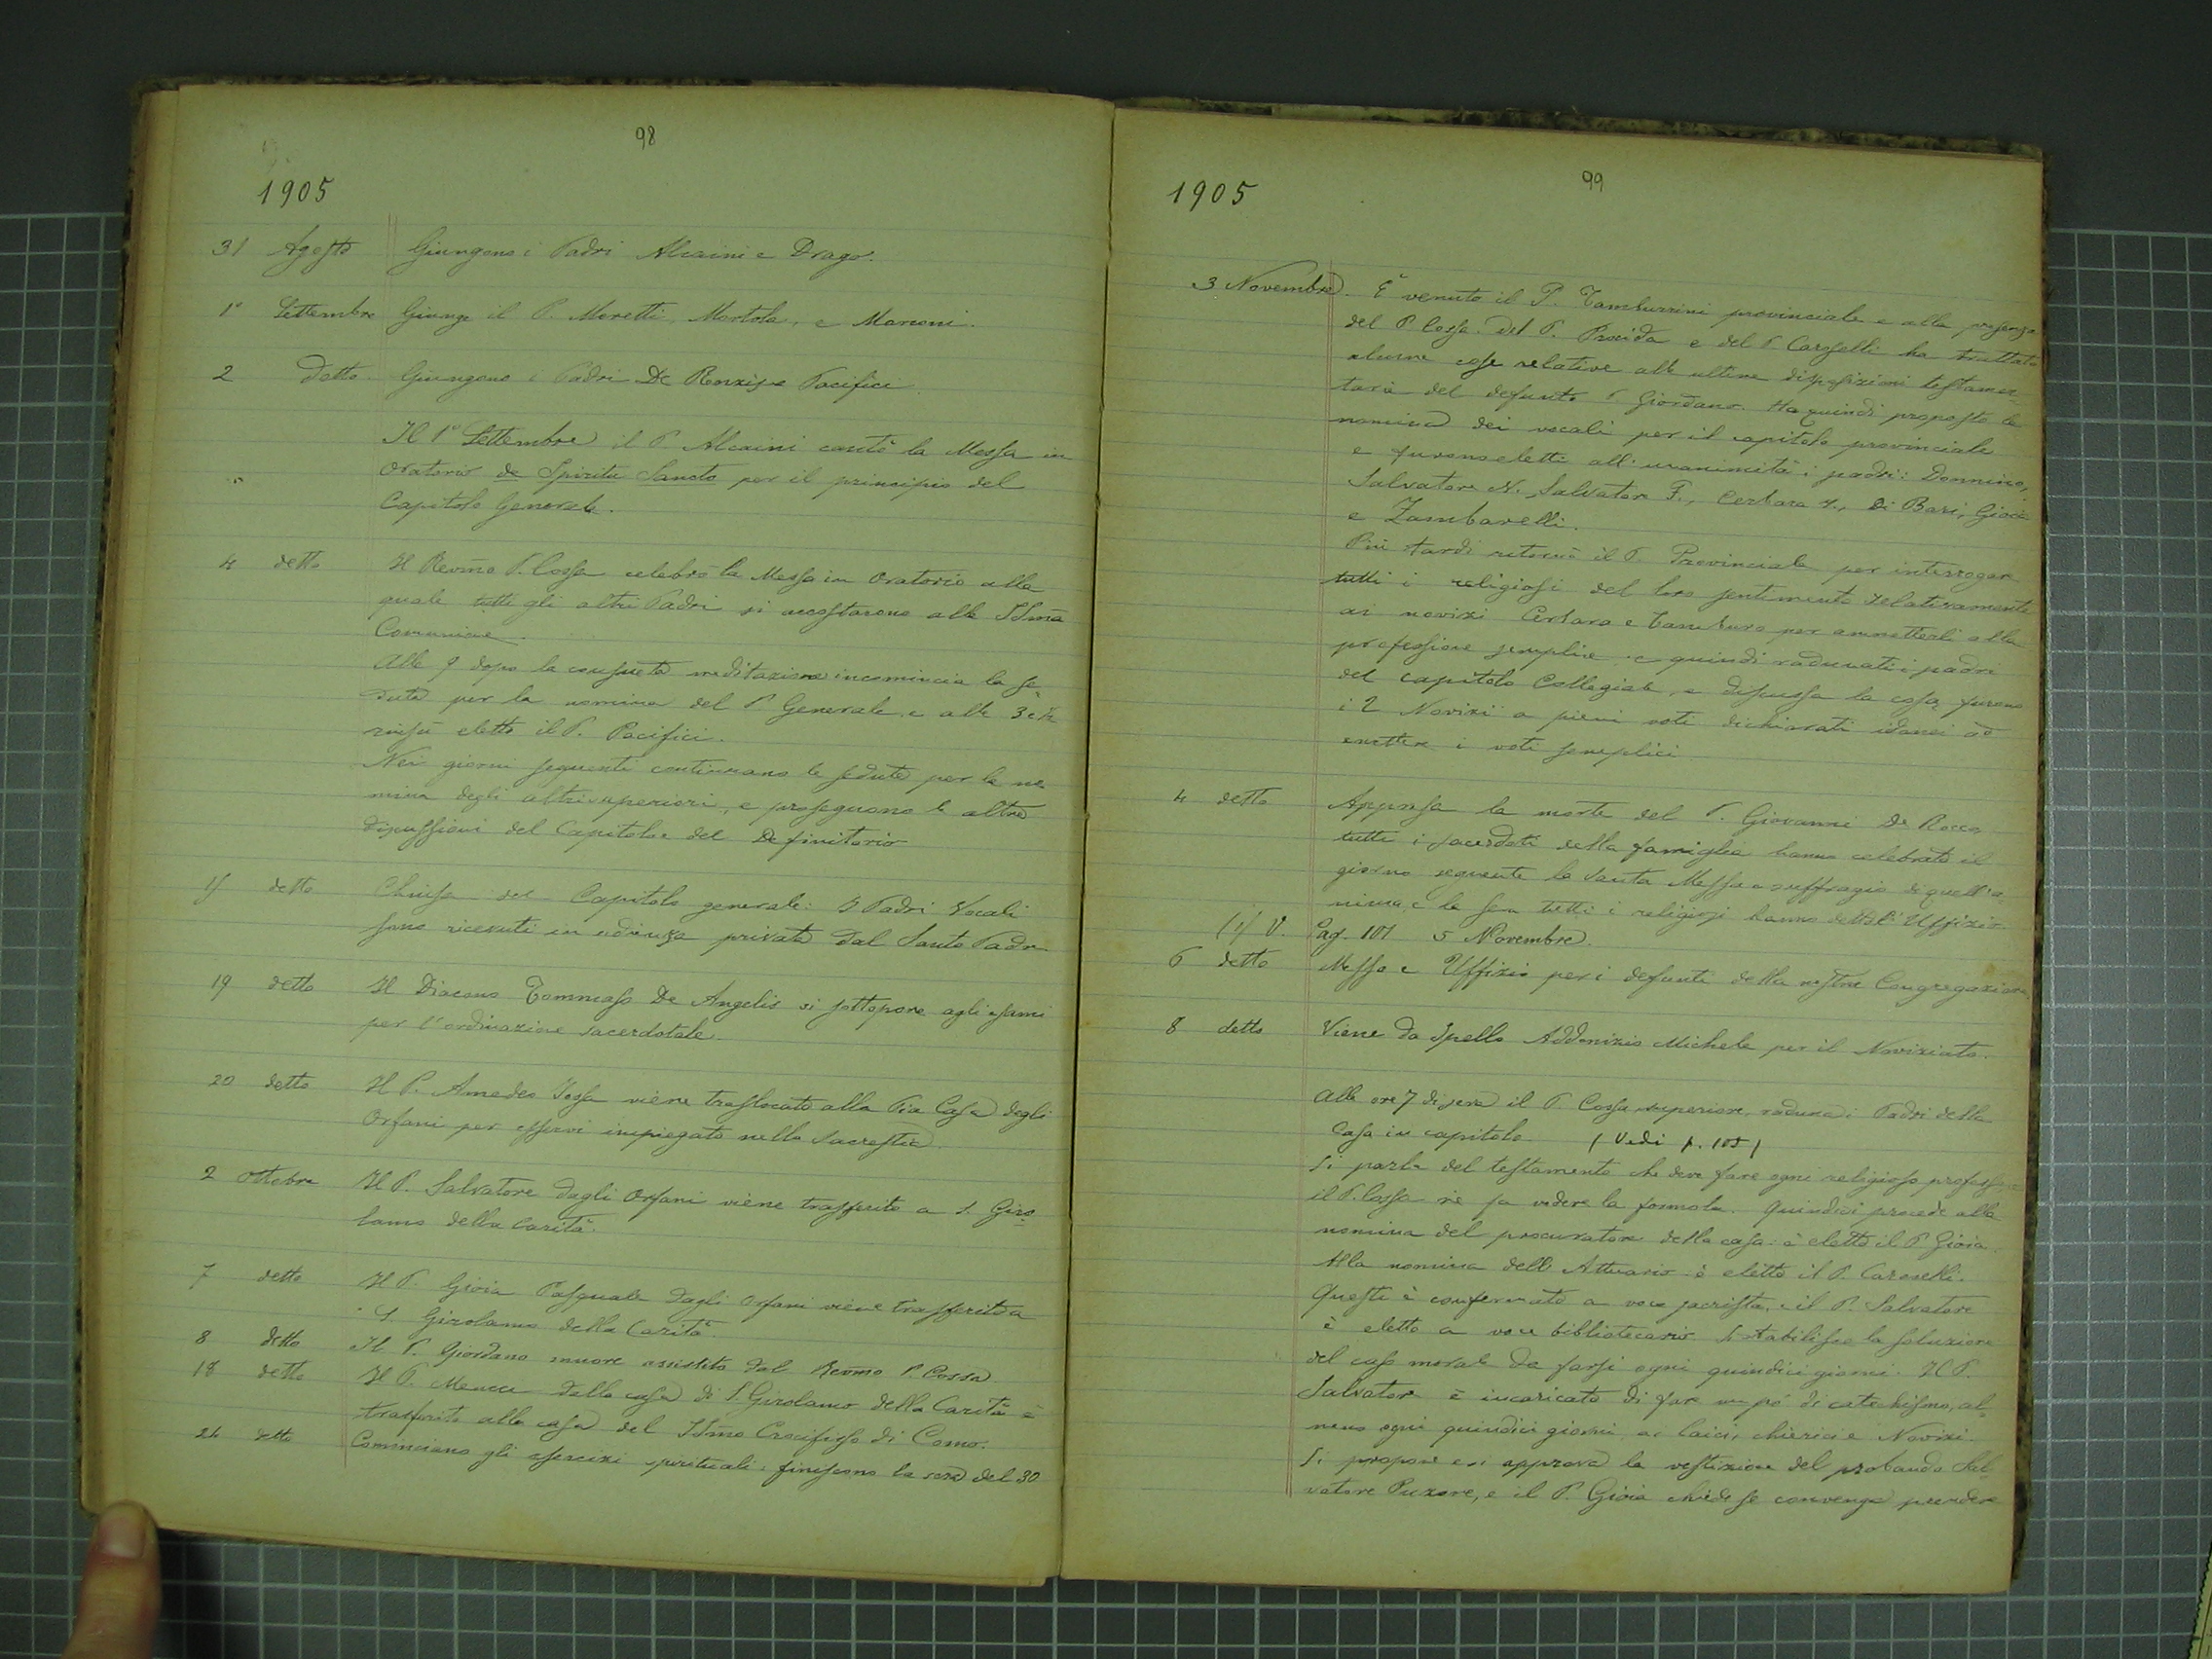 98
1905
31 Agosto Giungono i Padri Alcaini e Drago.
1° Settembre Giunge il P. Moretti, Mortola, e Marconi.
2 detto Giungono i Padri De Renzis e Pacifici
Il 1° Settembre il P. Alcaini cantò la Messa in
Oratorio de Spiritu Sancto per il principio del
Capitolo Generale.
4 detto Il Revmo P. Cossa celebrò la Messa in Oratorio alla
quale tutti gli altri Padri si accostarono alla SSma
Comunione.
Alle 9 dopo la consueta meditazione incomincia la se
duta per la nomina del P. Generale, e alle 3 e ½
riuscì eletto il P. Pacifici.
Nei giorni seguenti continuano le sedute per la no
mina degli altri superiori, e proseguono le altre
discussioni del Capitolo e del Definitorio
detto Chiusa del Capitolo generale: I Padri Vocali
sono ricevuti in udienza privata dal Santo Padre
19 detto Il Diacono Tommaso De Angelis si sottopone agli esami
per l'ordinazione sacerdotale.
20 detto Il P. Amedeo viene traslocato alla Pia Casa degli
Orfani per esservi impiegato nella Sacrestia.
2 Ottobre Il P. Salvatore dagli Orfani viene trasferito a S. Giro
lamo della Carità.
7 detto Il P. Gioia Pasquale dagli Orfani viene trasferito a
S. Girolamo della Carità.
8 detto Il P. Giordano muore assistito dal Revmo P. Cossa.
18 detto Il P. Meucci dalla casa di S. Girolamo della Carità è
trasferito alla casa del SSmo Crocifisso di Como.
24 detto Cominciano gli esercizi spirituali: finiscono la sera del 30
99
1905
3 Novembre. È venuto il P. Tamburrini provinciale e alla presenza
del P. Cossa. del P. Procida e del P. Caroselli ha trattato
alcune cose relative alle ultime disposizioni testamen
tarie del defunto P. Giordano. Ha quindi proposto la
nomina dei vocali per il capitolo provinciale
e furono eletti all'unanimità i padri: Donnino,
Salvatore N., Salvatore F., Cerbara, Di Bari, Gioia
e Zambarelli.
Più tardi ritornò il P. Provinciale per interrogare
tutti i religiosi del loro sentimento relativamente
ai novizi Cerbara e Tamburo per ammetterli alla
professione semplice, e quindi radunati i padri
del capitolo Collegiale, e discussa la cosa, furono
i 2 Novizi a pieni voti dichiarati idonei ad
emettere i voti semplici
4 detto Appresa la morte del P. Giovanni De Rocco
tutti i sacerdoti della famiglia hanno celebrato il
giorno seguente la Santa Messa a suffragio di quell'a
nima, e la sera tutti i religiosi hanno detto l'Uffizio.
(1) V. Pag. 101 5 Novembre.
6 detto Messa e Uffizio per i defunti della nostra Congregazione
8 detto Viene da Spello Addonizio Michele per il Noviziato.
Alle ore 7 di sera il P. Cossa superiore, raduna i Padri della
Casa in capitolo (Vedi p. 101)
Si parla del testamento che deve fare ogni religioso professo,
il P. Cossa ne fa vedere la formola. Quindi si procede alla
nomina del procuratore della casa: è eletto il P. Gioia.
Alla nomina dell'Attuario è eletto il P. Caroselli.
Questi è confermato a voce sacrista, e il P. Salvatore
è eletto a voce bibliotecario. Si stabilisce la soluzione
del caso morale da farsi ogni quindici giorni. Il P.
Salvatore è incaricato di fare un pò di catechismo, al
meno ogni quindici giorni, ai laici, chierici e Novizi.
Si propone e si approva la vestizione del probando Sal
vatore Puzone, e il P. Gioia chiede se convenga prendere